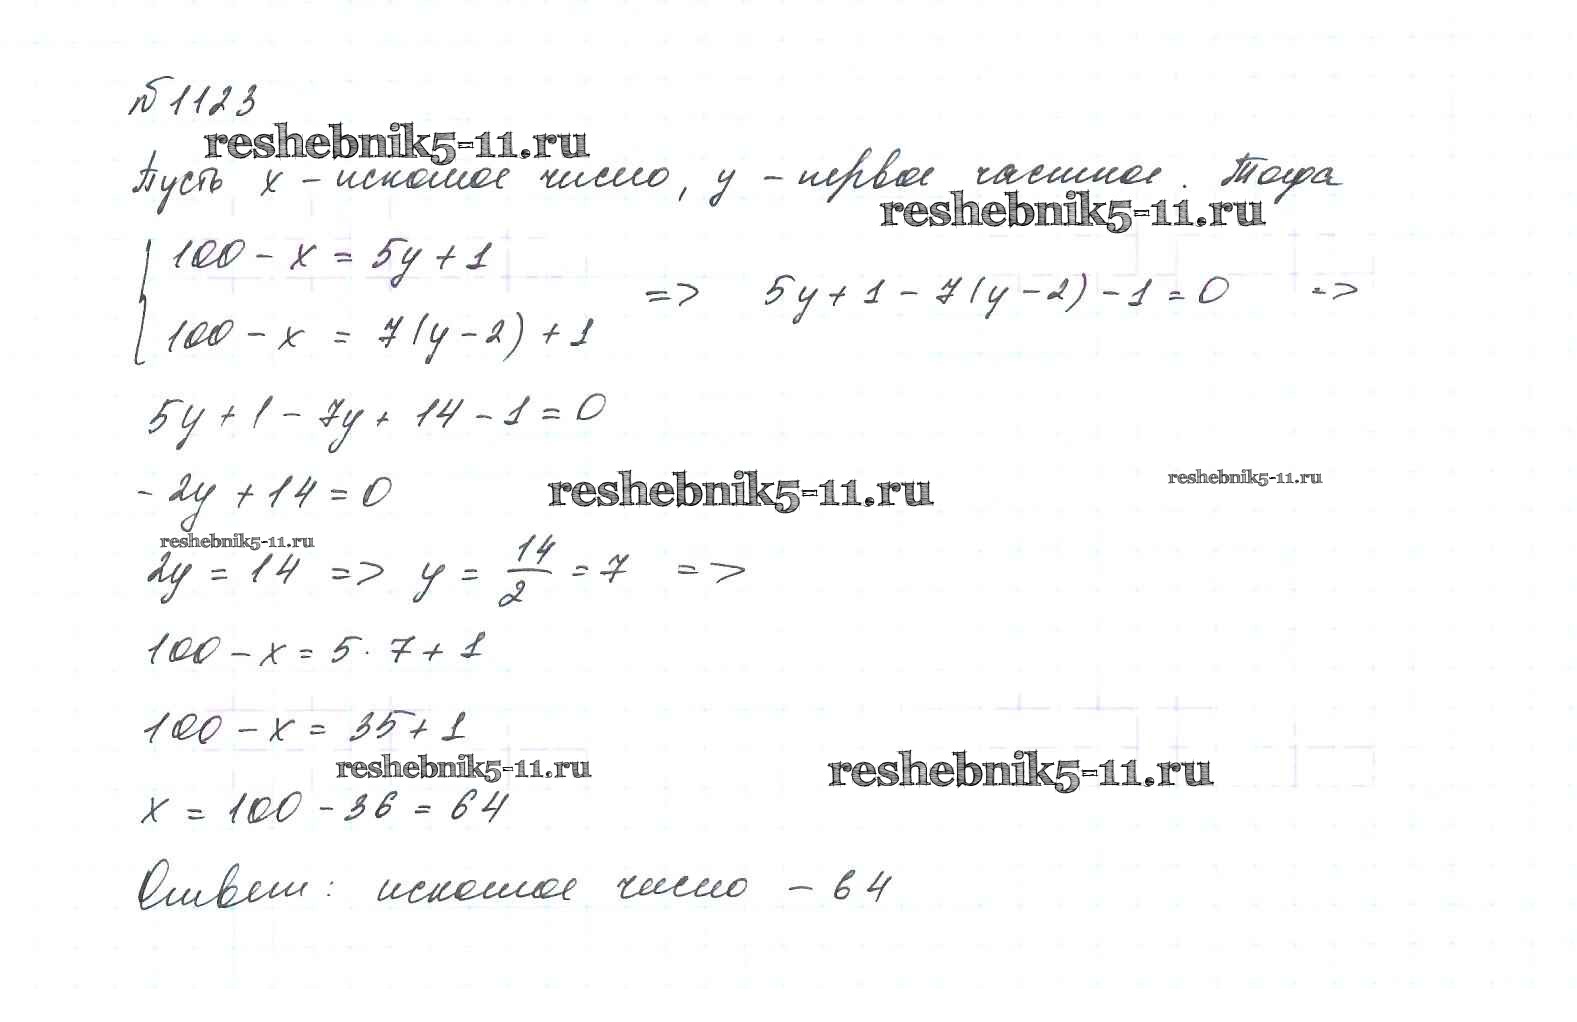 №1123
reshebnik5-11.ru
Пусть x – искомое число, y – первое частное. Тогда
reshebnik5-11.ru
100 – x = 5y + 1
100 – x = 7(y – 2) + 1
=> 5y + 1 – 7(y – 2) – 1 = 0 =>
5y + 1 – 7y + 14 – 1 = 0
– 2y + 14 = 0
reshebnik5-11.ru
reshebnik5-11.ru
reshebnik5-11.ru
2y = 14 => y = 14/2 = 7 =>
100 – x = 5 · 7 + 1
100 – x = 35 + 1
reshebnik5-11.ru
reshebnik5-11.ru
x = 100 – 36 = 64
Ответ: искомое число – 64